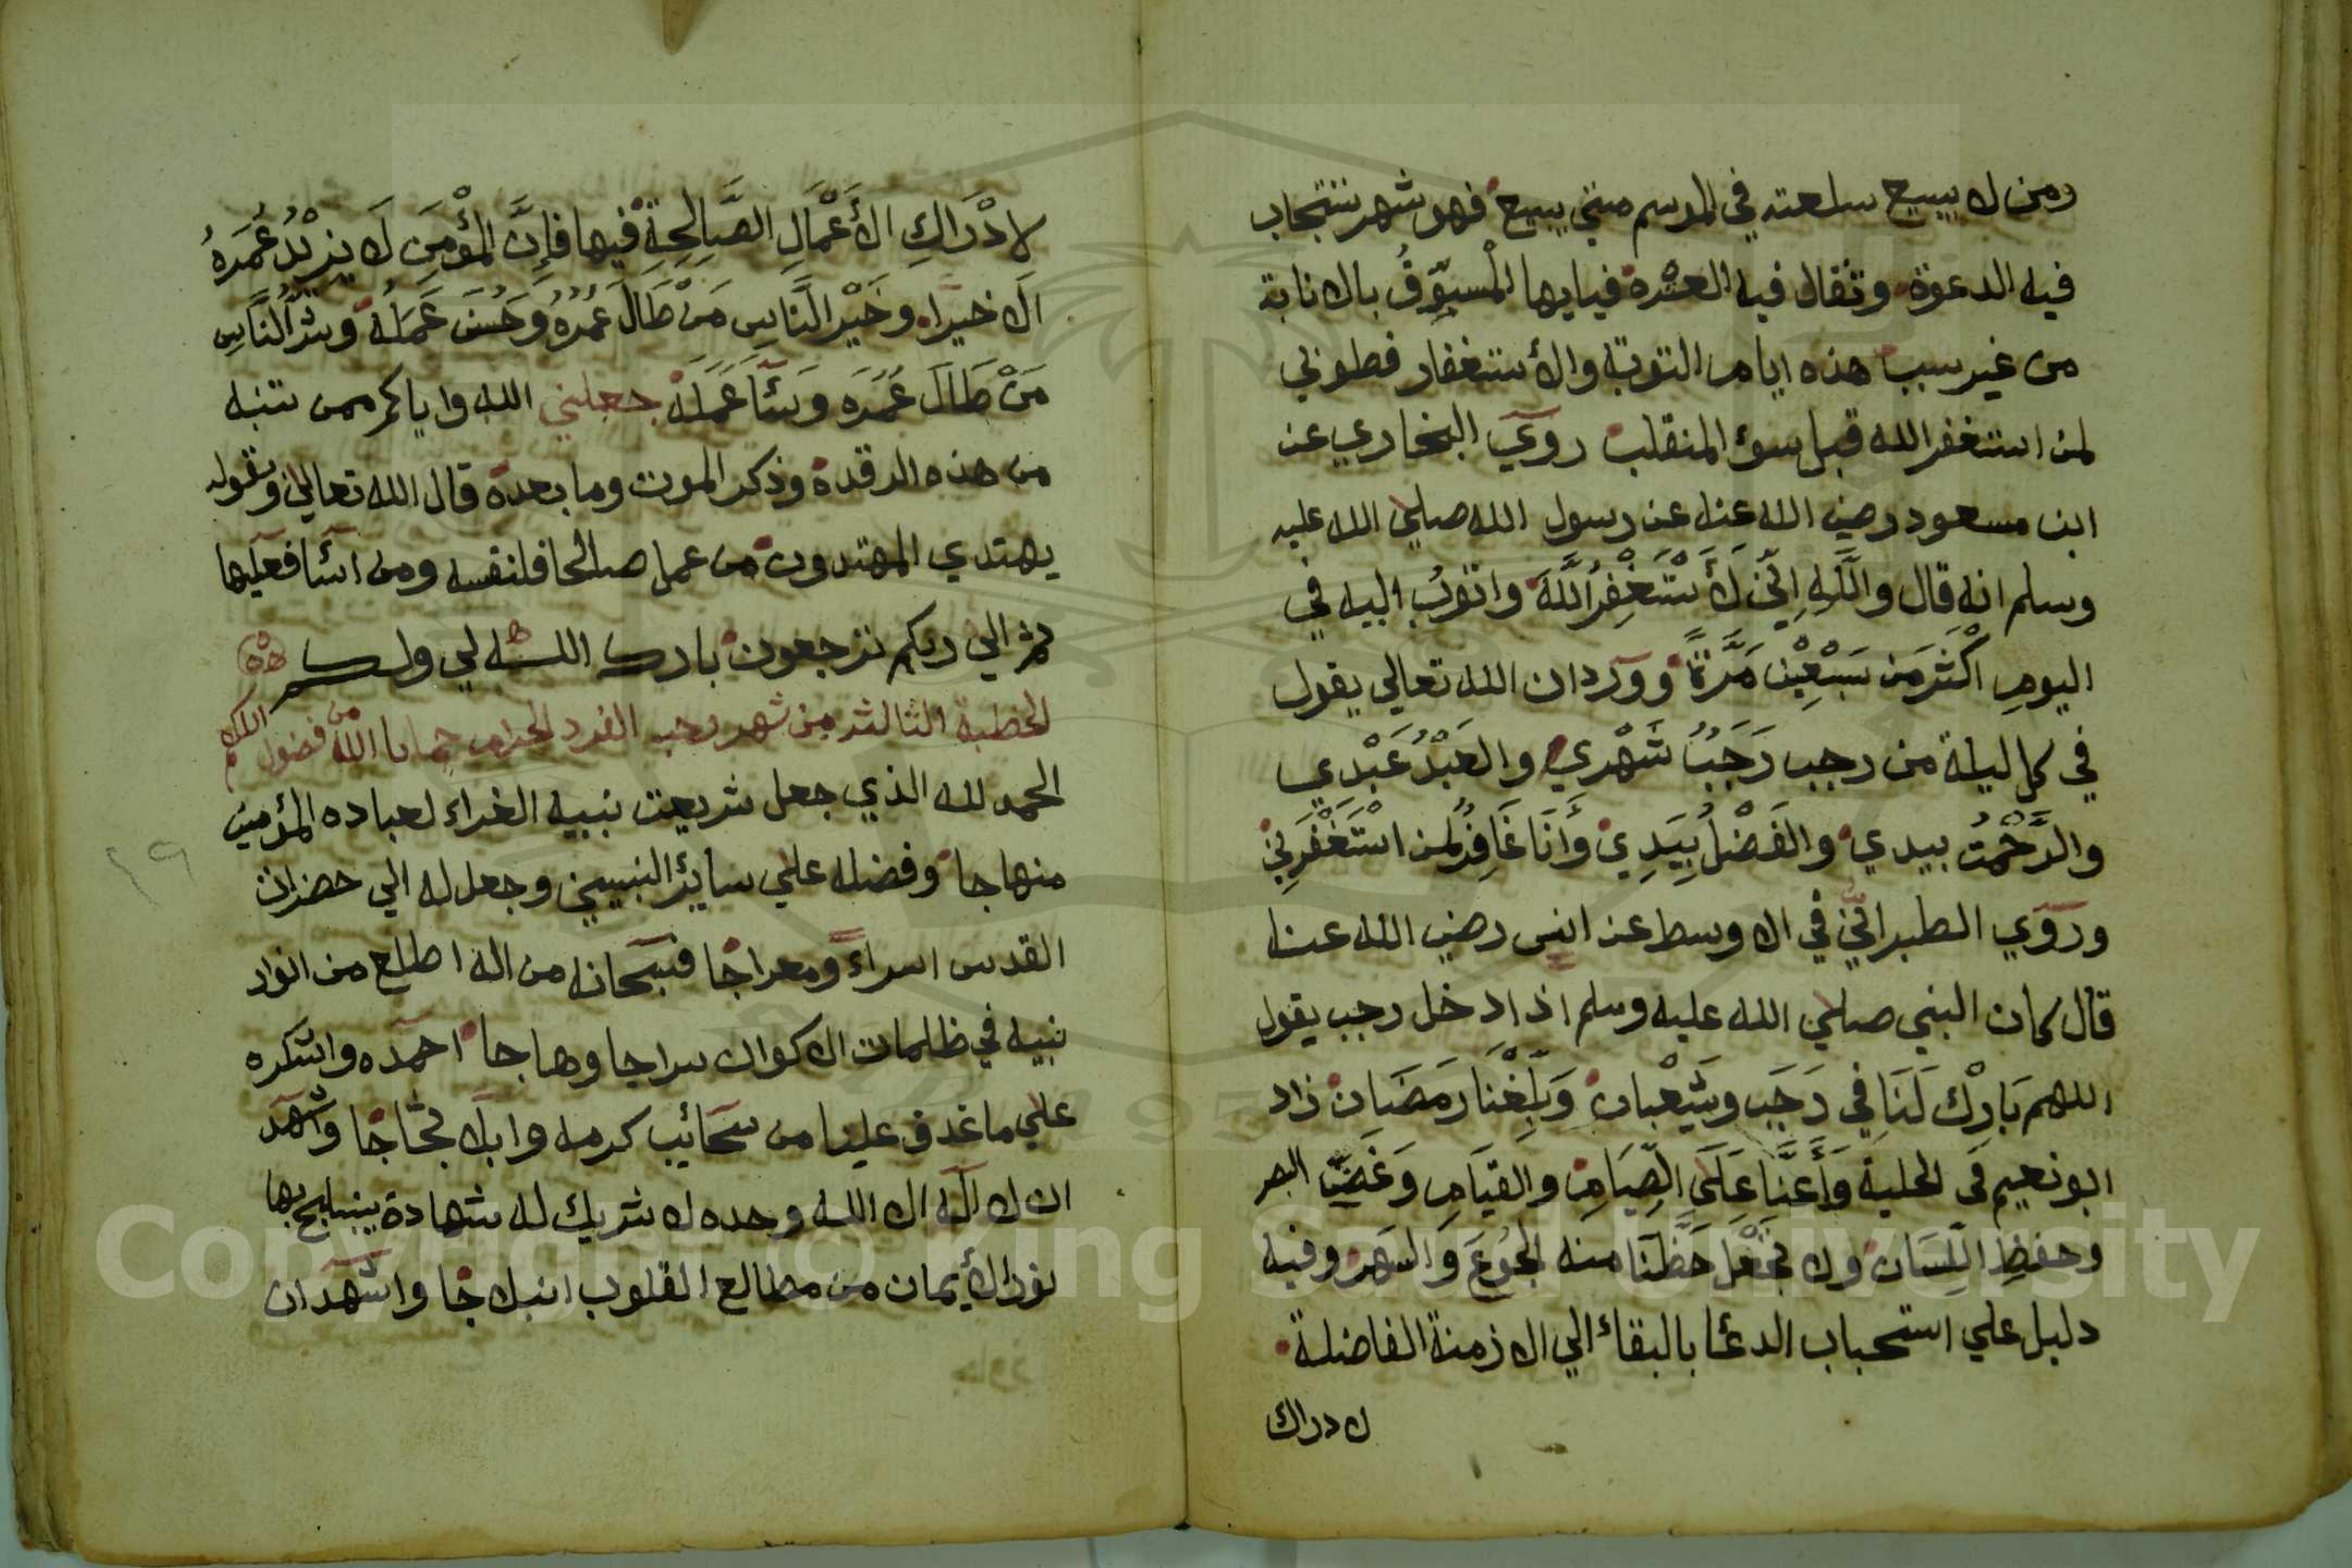 ومن لا يبيع سلعته في الموسم متي يبيع فهو شهر تستجاب
فيه الدعوة وتقال فيه العثرة فيايها المُسَوِّفُ بالانابة
من غير سبب هذه ايام التوبة والأستغفار فطوبي
لمن استغفر الله قبل سوء المنقلب رَوَي البخاري عن
ابن مسعود رضي الله عنه عن رسول الله صلي الله عليه
وسلم انه قال واللَّهِ اِنِّي لَأَسْتَغْفِرُ اللَّهَ واتوبُ اليه في
اليومِ اَكْثَرَ مَن سَبْعِيْن مَرَّةً وورد ان الله تعالي يقول
في كل ليلة من رجب رَجَبُ شَهْري والعَبْدُ عَبْدي
والرَّحْمَتُ بيدي والفَضْلُ بِيَدِي وَأَنَا غَافِرُ لمن اسْتَغْفَرِني
ورَوَي الطبراني في الاوسط عن انس رضي الله عنه
قال كان النبي صلي الله عليه وسلم اذا دخل رجب يقول
اللهم بَارِكْ لَنَا في رَجَبٍ وشَعْبان وَبَلِّغْنَا رَمَضَان زاد
ابو نعيم في الحلية وَأَعِنَّا عَلَى الصِّيَامِ والقيَامِ وَغَضِّ البصر
وحفظِ اللِّسَان ولا تجْعَل حَظَّنَا منه الجُوعَ وَالسَهَر وفيه
دليل علي استحباب الدعا بالبقاء الي الازمنة الفاضلة
لادراك
لادْرَاكِ الأَعْمَالِ الصَّالِحَةِ فيها فإِنَّ المُؤْمِنَ لَا يزيْدُ عُمَرَهُ
اَلا خيرا وخَيْرُ النَّاسِ مَنْ طَالَ عُمرهُ وَحَسُنَ عَمَلُهُ وشَرُّ النَّاسِ
مَنْ طَالَ عُمَرَه وَسَآءَ عَمَلَهُ جعلني الله واياكم ممن تنبه
من هذه الرقدة وذكر الموت وما بعدة قال الله تعالي وبقوله
يهتدي المهتدون من عمل صالحا فلنفسه ومن اسآ فعليها
ثم الي ربكم ترجعون بارك الله لي ولكم
الخطبة الثالثة من شهر رجب الفرد الحرام حمانا الله من فضول الكلام
الحمد لله الذي جعل شريعت نبيه الغراء لعباده المؤمنين
منهاجا وفضله علي سائر النبيين وجعل له الي حضرات
القدس اسراءً ومعراجًا فسبحانه من اله اطلع من انوار
نبيه في ظلمات الاكوان سراجا وهاجا احمده واشكره
علي ما غدق علينا من سحائب كرمه وابلا ثجاجًا واشهد
ان لا اله الا الله وحده لا شريك له شهادة ينبلج بها
نور الأيمان من مطالع القلوب انبلاجًا واشهد ان
٢٩